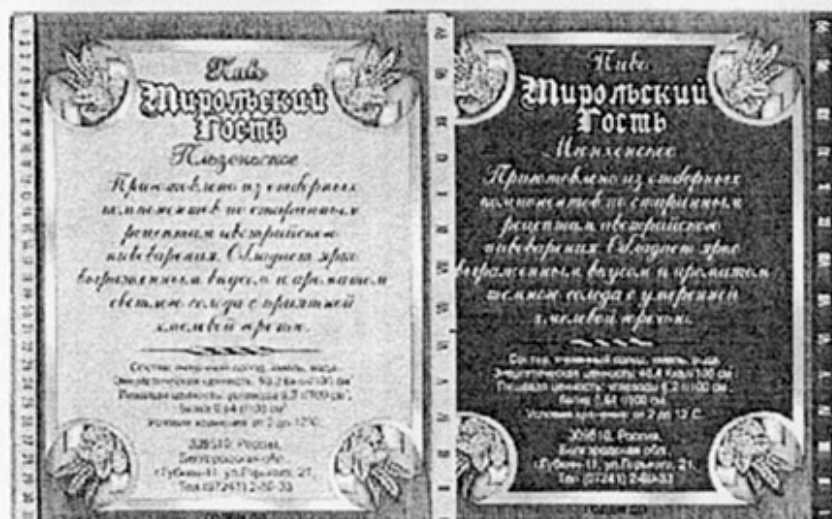 Пиво
Тирольский
Гость
Пльзеньское
Приготовлено из отборных
компонентов по старинным
рецептам австрийского
пивоварения. Обладает ярко
выраженным вкусом и ароматом
светлого солода с приятной
хмелевой горечью.
Состав: ячменный солод, хмель, вода.
Энергетическая ценность:
Пищевая ценность: углеводы
белка 0,64 г/100 см
Условия хранения: от 2 до 12°С.
309510, Россия,
Белгородская обл.,
г.Губкин-11, ул.Горького, 21,
Тел. (07241) 2-60-33
Пиво
Тирольский
Гость
Мюнхенское
Приготовлено из отборных
компонентов по старинным
рецептам австрийского
пивоварения. Обладает ярко
выраженным вкусом и ароматом
темного солода с умеренной
хмелевой горечью.
Состав: ячменный солод, хмель, вода.
Энергетическая ценность:
Пищевая ценность: углеводы
белка 0,64 г/100 см
Условия хранения: от 2 до 12°С.
309510, Россия,
Белгородская обл.,
г.Губкин-11, ул.Горького, 21,
Тел. (07241) 2-60-33